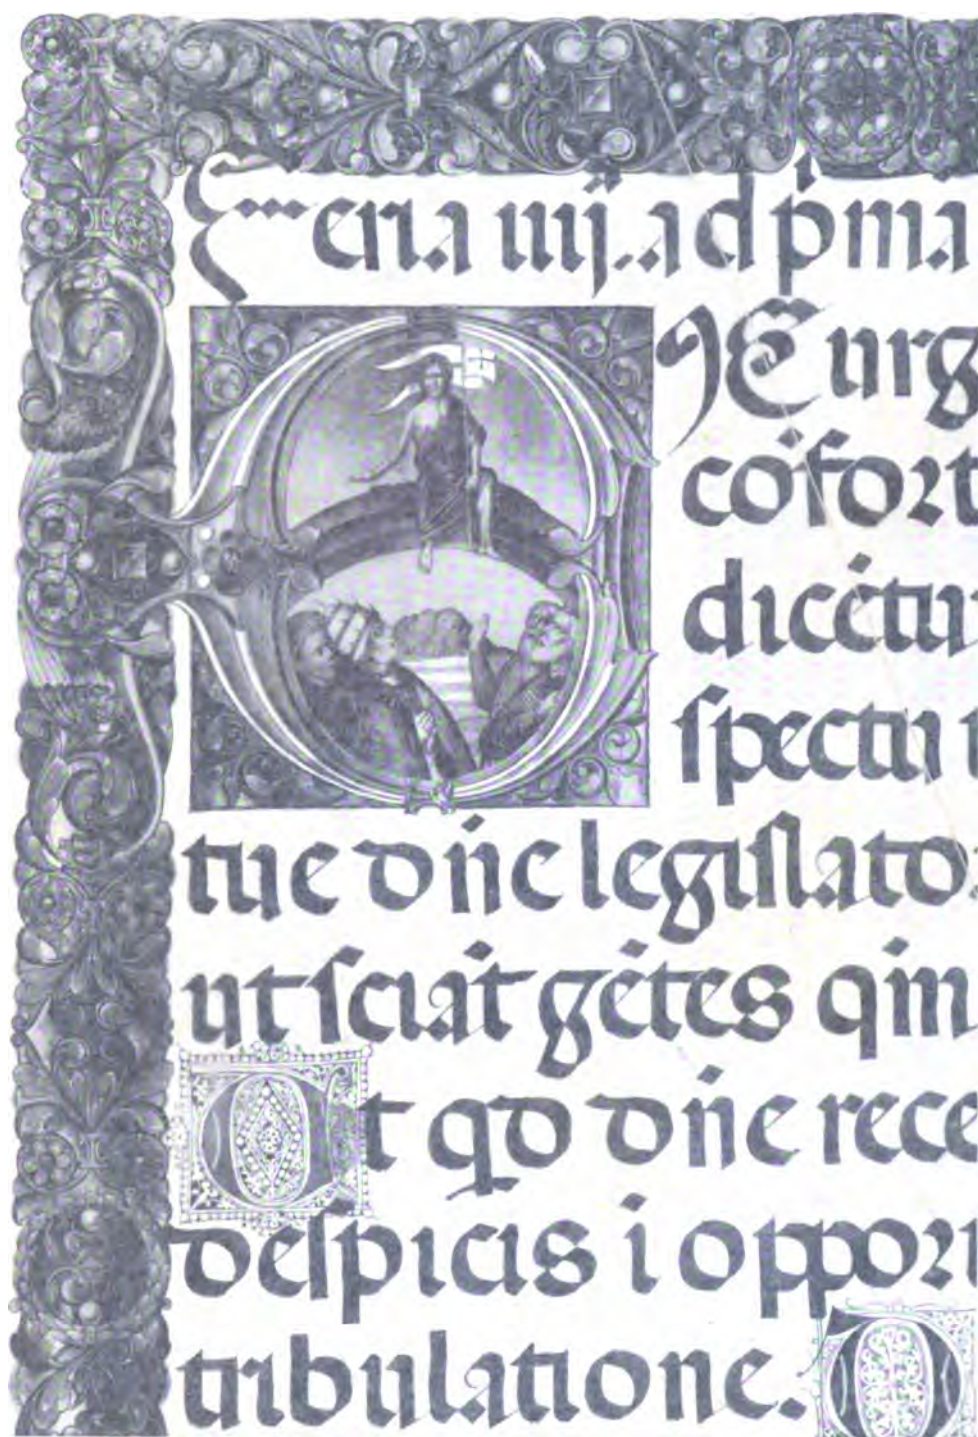 Feria iiij. ad p̄ma
EXurg
cōfort
dicētu
ſpectu
tue dn̄e legiſlato
ut ſciāt gētes qm̄
Ut qd dn̄e rece
deſpicis ī opport
tribulatione. D